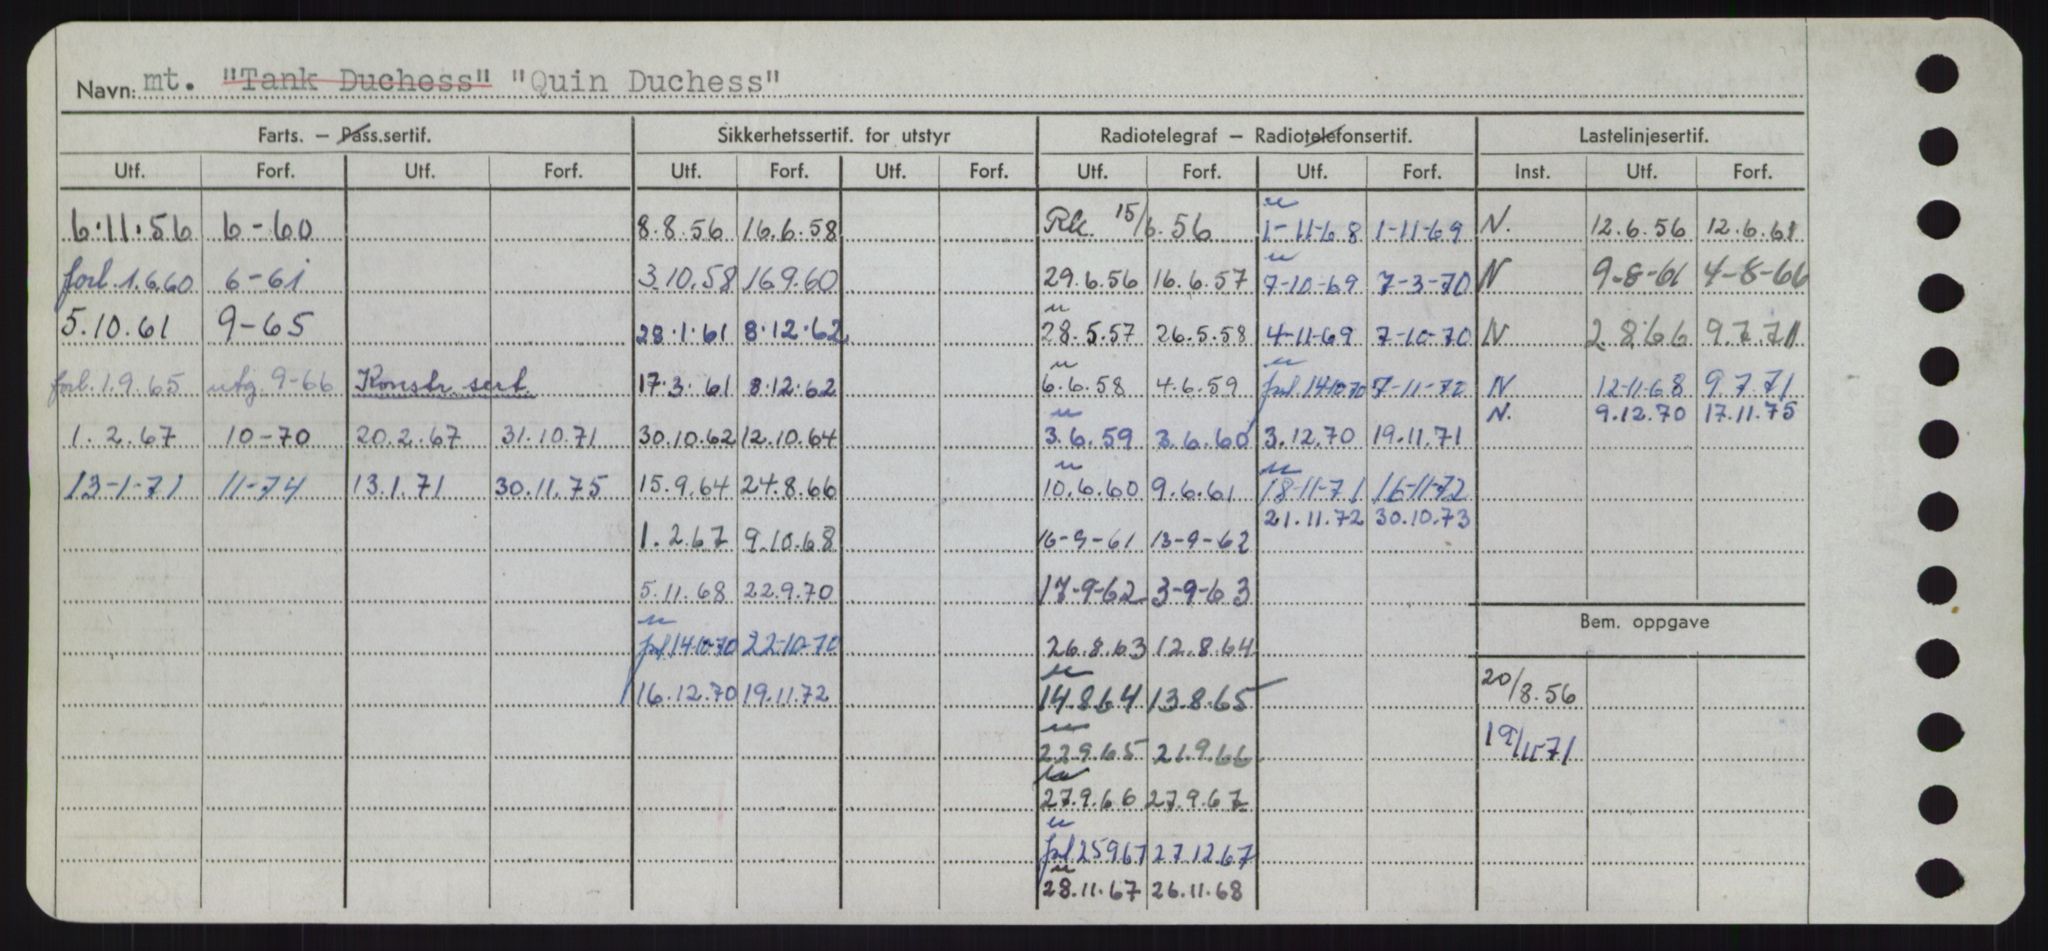 Navn: mt. "Tank Duchess" "Quin Duchess"
Farts. — Pass.sertif. Sikkerhetssertif. for utstyr Radiotelegraf — Radiotelefonsertif. Lastelinjesertif.
Utf. Forf. Utf. Forf. Utf. Forf. Utf. Forf. Utf. Forf. Utf. Forf. Inst. Utf. Forf.
6.11.56 6-60 8.8.56 16.6.58 Rk. 15/6.56 1-11-68 1-11-69 N. 12.6.56 12.6.61
forl. 1.6.60 6-61 3.10.58 16.9.60 29.6.56 16.6.57 7-10-69 7-3-70 N 9-8-61 4-8-66
5.10.61 9-65 28.1.61 8.12.62 28.5.57 26.5.58 4-11-69 7-10-70 N 2.8.66 9.7.71
forl. 1.9.65 utg. 9-66 Konstr. sert. 17.3.61 8.12.62 6.6.58 4.6.59 forl. 14-10-70 7-11-72 N 12-11-68 9.7.71
N. 9.12.70 17.11.75
1.2.67 10-70 20.2.67 31.10.71 30.10.62 12.10.64 3.6.59 3.6.60 3.12.70 19.11.71
13-1-71 11-74 13.1.71 30.11.75 15.9.64 24.8.66 10.6.60 9.6.61 18-11-71 16-11-72
21.11.72 30.10.73
1.2.67 9.10.68 16-9-61 13-9-62
5.11.68 22.9.70 17-9-62 3-9-63
Bem. oppgave
forl 14-10-70 22-10-70 26.8.63 12.8.64
16.12.70 19.11.72 14.8.64 13.8.65 20/8.56
22.9.65 21.9.66 19/11-71
27.9.66 27.9.67
forl 25.9.67 27.12.67
28.11.67 26.11.68